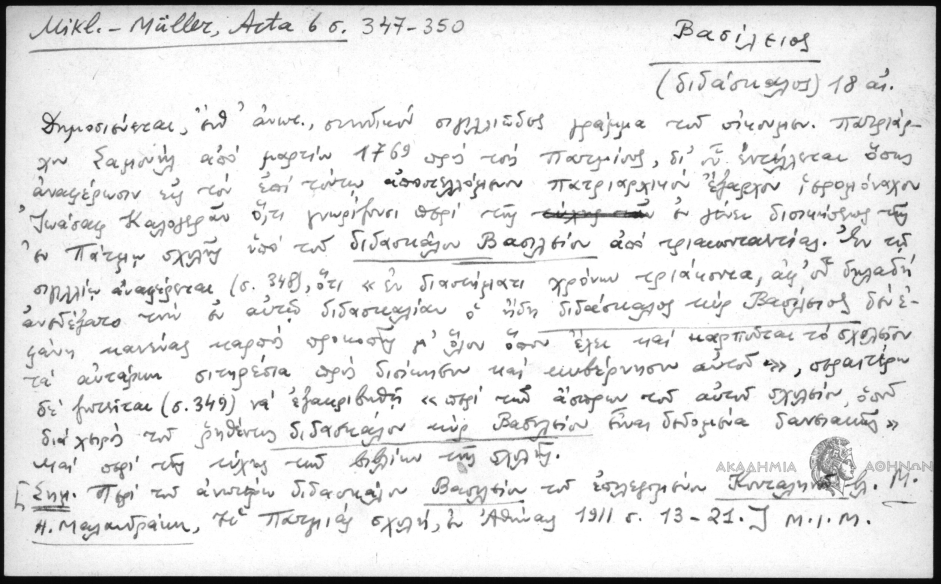 Mikl.-Müller, Acta 6 σ. 347-350
Βασίλειος
(διδάσκαλος) 18 αι.
Δημοσιεύεται, ἔνθ' ἀνωτ., συνοδικὸν σιγιλλιῶδες γράμμα τοῦ οἰκουμεν. Πατριάρ-
χου Σαμουὴλ ἀπὸ μαρτίου 1769 πρὸς τοὺς Πατμίους, δι' οὗ ἐντέλλεται ὅπως
ἀναφέρωσιν εἰς τὸν ἐπὶ τούτῳ ἀποστελλόμενον πατριαρχικὸν ἔξαρχον ἱερομόναχον
Ἰωάσαφ Καλογερᾶν ὅτι γνωρίζουσι περὶ τῆς ἐν γένει διοικήσεως τῆς
ἐν Πάτμῳ σχολῆς ὑπὸ τοῦ διδασκάλου Βασιλείου ἀπὸ τριακονταετίας. Ἐν τῷ
σιγιλλίῳ ἀναφέρεται (σ. 348), ὅτι «ἐν διαστήματι χρόνων τριάκοντα, ἀφ' οὗ δηλαδὴ
ἀνεδέξατο τὴν ἐν αὐτῷ διδασκαλίαν ὁ ἤδη διδάσκαλος κὺρ Βασίλειος δὲν ἐ-
φάνη κανένας καρπὸς προκοπῆς μ' ὅλον ὅπου ἔχει καὶ καρποῦται τὸ σχολεῖον
τὰ αὐτάρκη σιτηρέσια πρὸς διοίκησιν καὶ κυβέρνησιν αὐτοῦ», περαιτέρω
δὲ ζητεῖται (σ. 349) νὰ ἐξακριβωθῇ «περὶ τῶν ἄσπρων τοῦ αὐτοῦ σχολείου, ὁποῦ
διὰ χειρὸς τοῦ ῥηθέντος διδασκάλου κὺρ Βασιλείου εἶναι δεδομένα δανειακῶς»
καὶ περὶ τῆς τύχης τῶν βιβλίων τῆς σχολῆς.
[Σημ. Περὶ τοῦ ἀνωτέρω διδασκάλου Βασιλείου τοῦ ἐπιλεγομένου Μ.
Η. Μαλανδράκη, Ἡ Πατμιὰς σχολή, ἐν Ἀθήναις 1911 σ. 13-21.] Μ.Ι.Μ.
ΑΚΑΔΗΜΙΑ ΑΘΗΝΩΝ